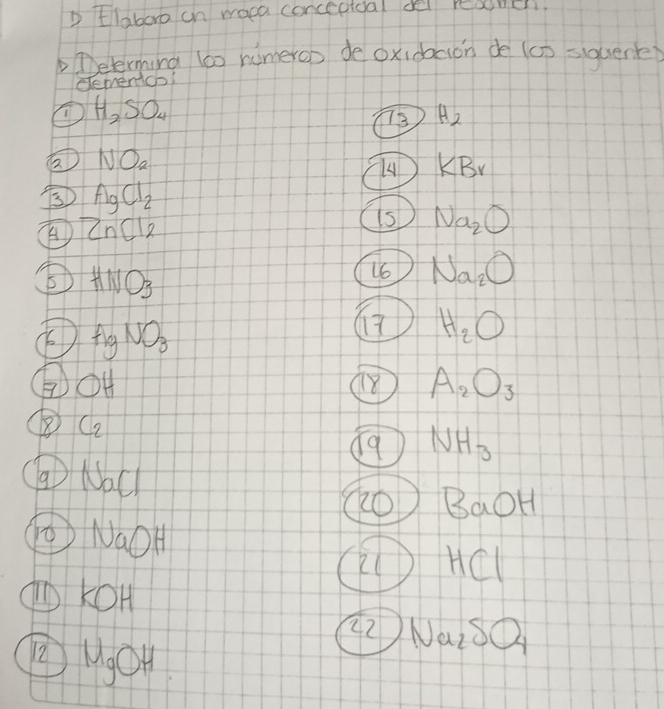 ▷ Elabora un mapa conceptual del resumen.
▷ Determina los números de oxidación de los siguientes
elementos:
① H₂SO₄
② NO₂
③ AgCl₂
④ ZnCl₂
⑤ HNO₃
⑥ AgNO₃
⑦ OH
⑧ C₂
⑨ NaCl
⑩ NaOH
⑪ KOH
⑫ MgOH
⑬ H₂
⑭ KBr
⑮ Na₂O
⑯ Na₂O
⑰ H₂O
⑱ A₂O₃
⑲ NH₃
⑳ BaOH
㉑ HCl
㉒ Na₂SO₄